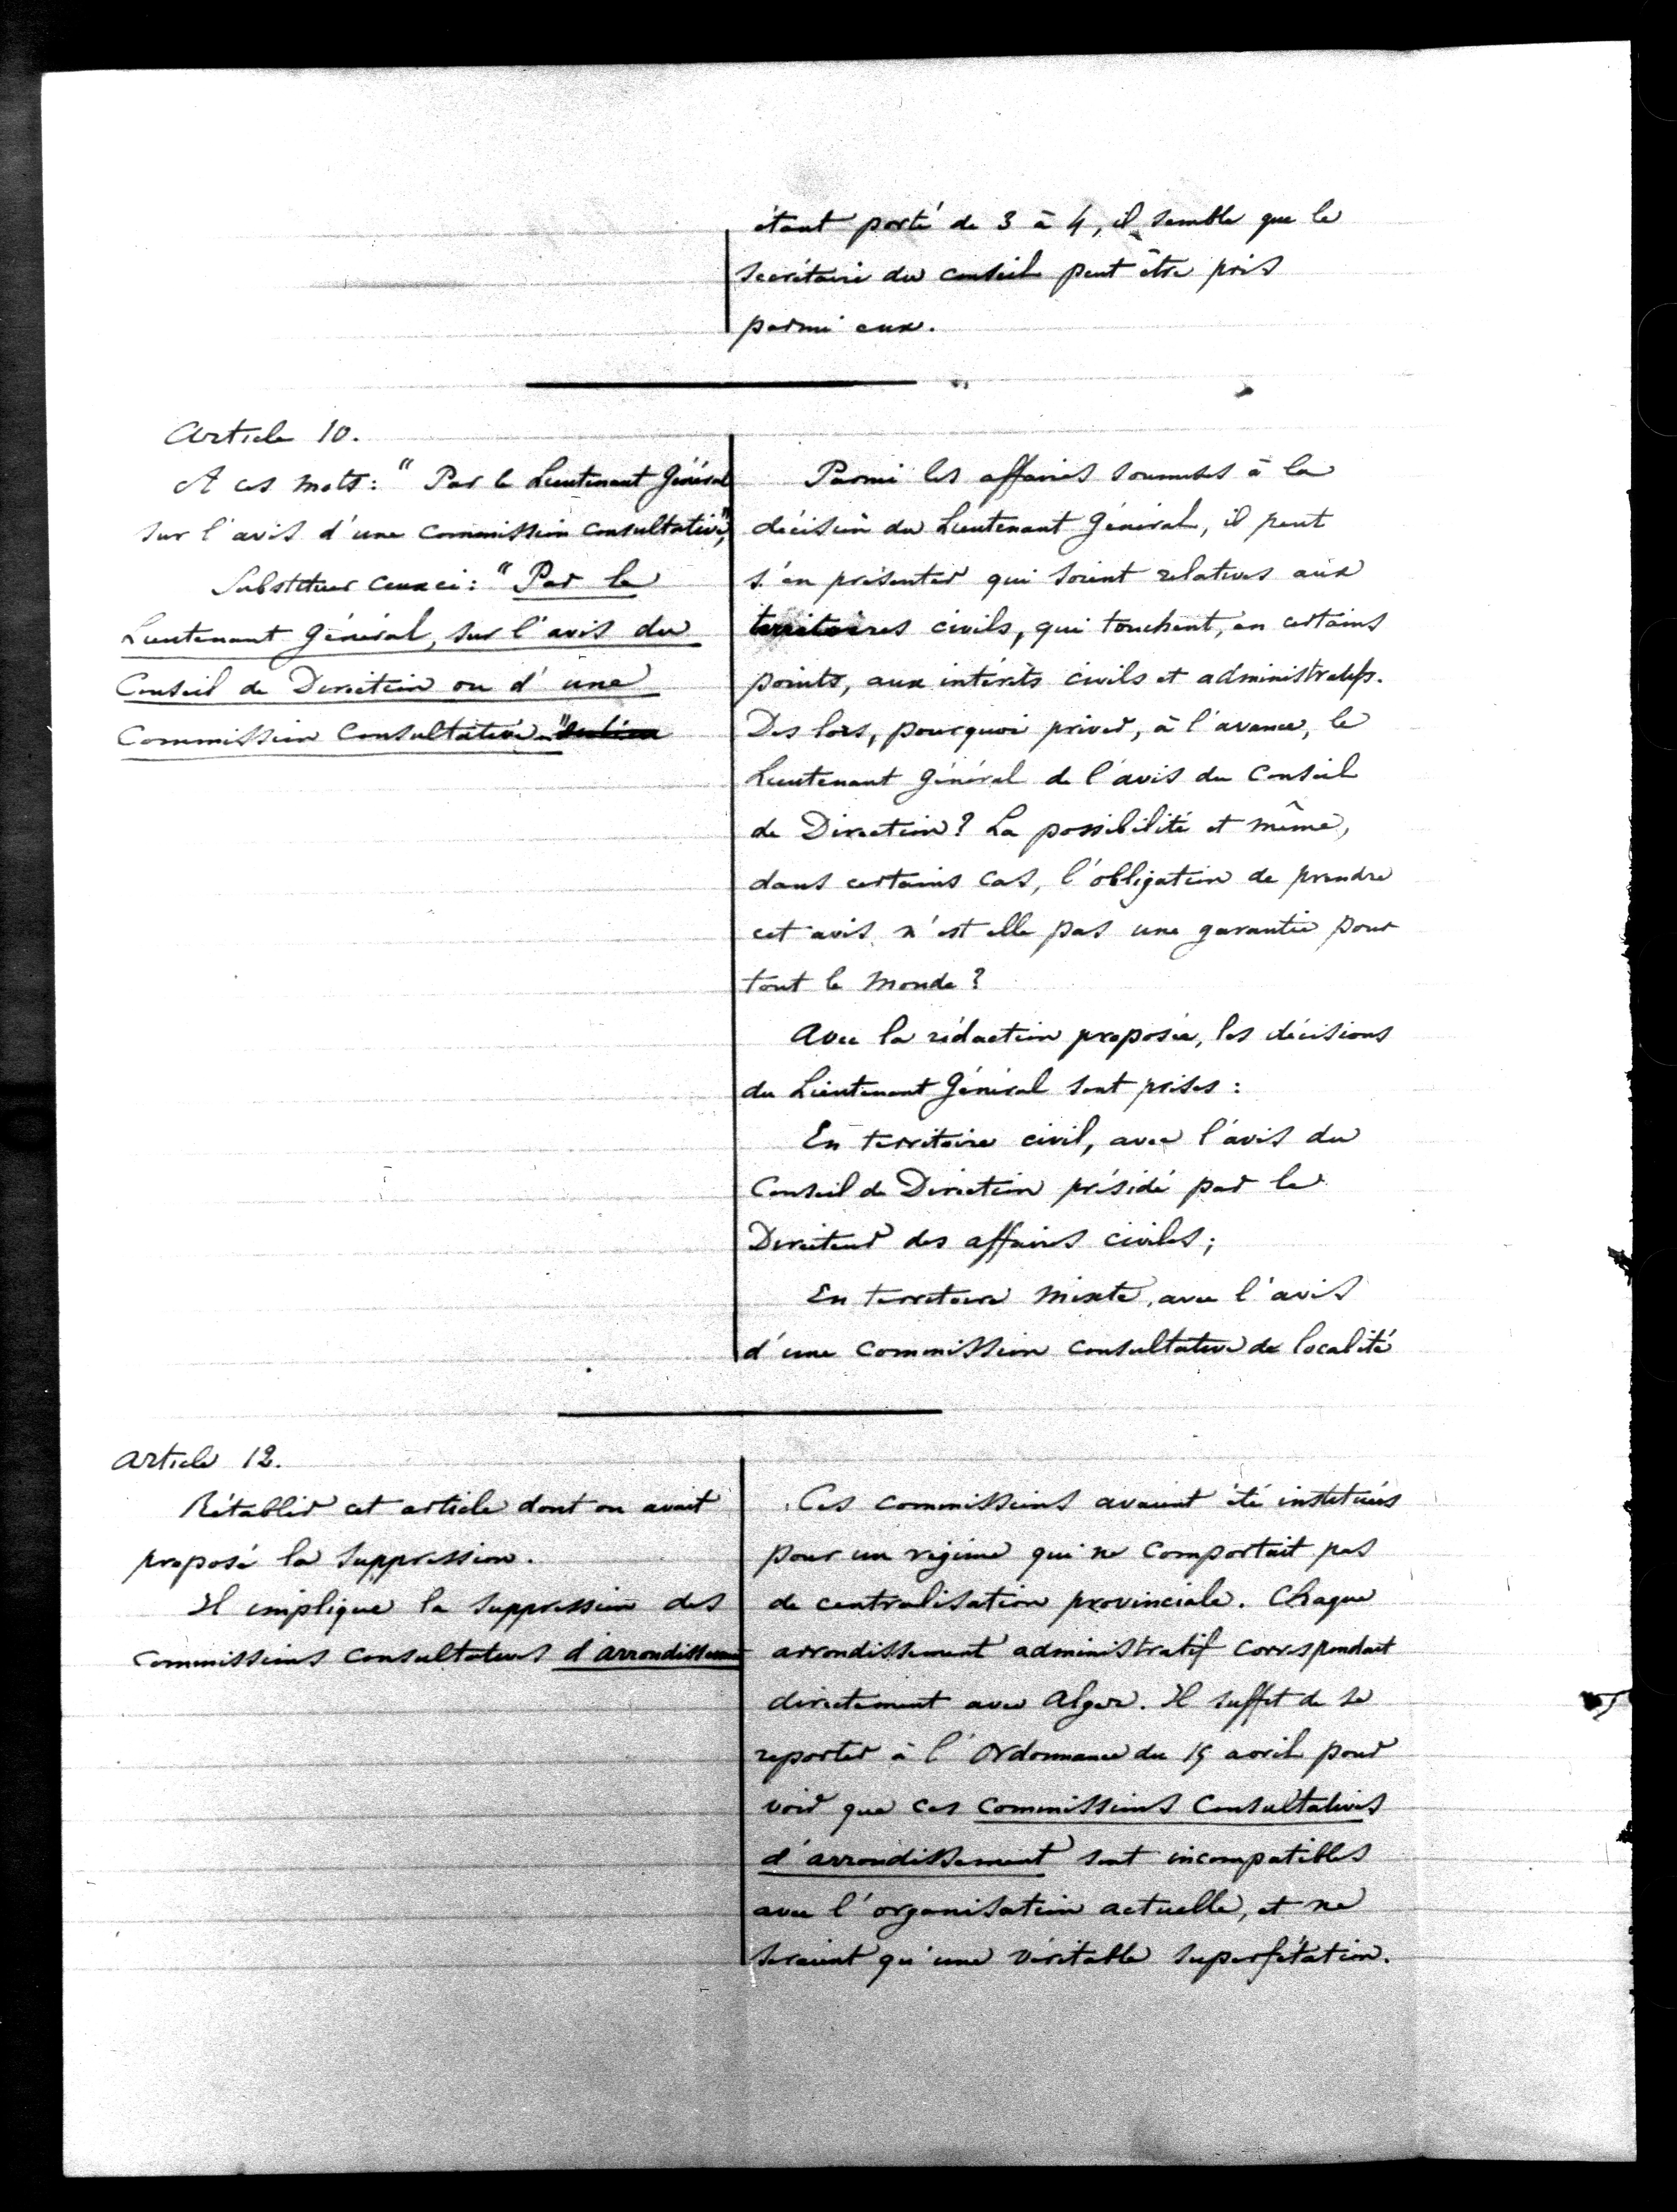 étant porté de 3 à 4, il semble que le
secrétaire du conseil peut être pris
parmi eux.
Article 10.
A ces mots: " Par le Lieutenant Général
sur l'avis d'une commission consultative",
Substituer ceux ci: " Par le
Lieutenant Général, sur l'avis du
Conseil de Direction ou d'une
Commission Consultative "
Parmi les affaires soumises à la
décision du Lieutenant Général, il peut
s'en présenter qui soient relatives aux
territoires civils, qui touchent, en certains
points, aux intérêts civils et administratifs.
Des lors, pourquoi priver, à l'avance, le
Lieutenant Général de l'avis du Conseil
de Direction? La possibilité et même,
dans certains cas, l'obligation de prendre
cet avis n'est elle pas une garantie pour
tout le monde?
Avec la rédaction proposée, les décisions
du Lieutenant Général sont prises :
En territoire civil, avec l'avis du
Conseil de Direction présidé par le
Directeur des affaires civiles;
En territoire mixte, avec l'avis
d'une commission consultative de localité
Article 12.
Rétablir cet article dont on avait
proposé la suppression.
Il implique la suppression des
commissions consultatives d'arrondissement
Ces commissions avaient été instituées
pour un régime qui ne comportait pas
de centralisation provinciale. Chaque
arrondissement administratif correspondait
directement avec Alger. Il suffit de se
reporter à l'Ordonnance du 15 avril pour
voir que ces commissions consultatives
d'arrondissement sont incompatibles
avec l'organisation actuelle, et ne
seraient qu'une véritable superfétation.